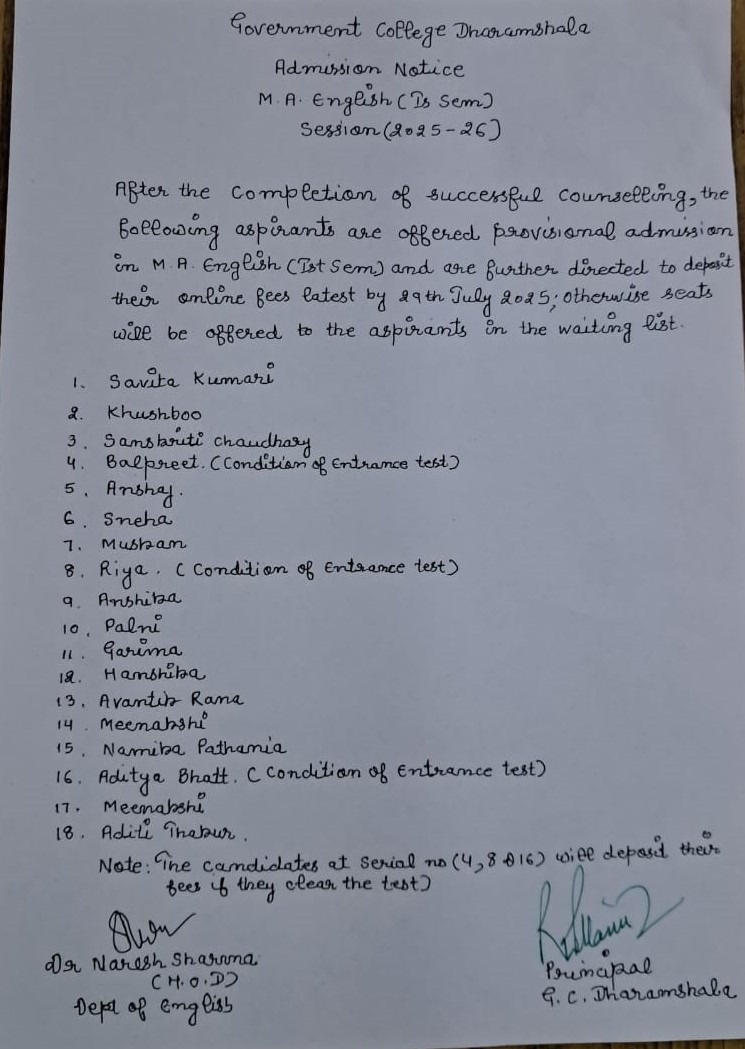 Government College Dharamshala
Admission Notice
M.A. English (Is Sem)
Session (2025-26)
After the completion of successful counselling, the
following aspirants are offered provisional admission
in M.A. English (Ist Sem) and are further directed to deposit
their online fees latest by 29th July 2025; otherwise seats
will be offered to the aspirants in the waiting list.
1. Savita Kumari
2. Khushboo
3. Sanskriti Chaudhary
4. Balpreet. (Condition of Entrance test)
5. Anshaj.
6. Sneha
7. Muskan
8. Riya. (Condition of Entrance test)
9. Anshika
10. Palni
11. Garima
12. Hanshika
13. Avantik Rana
14. Meenakshi
15. Namika Pathania
16. Aditya Bhatt. (Condition of Entrance test)
17. Meenakshi
18. Aditi Thakur.
Note: The candidates at Serial no (4, 8 & 16) will deposit their
fees if they clear the test)
Dr Naresh Sharma
(H.O.D)
Dept of English
Principal
G.C. Dharamshala